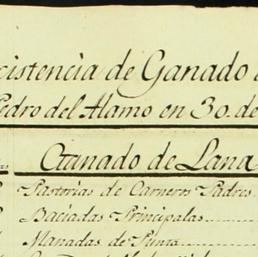 cistencia de Ganado
Pedro del Alamo en 30. de
Ganado de Lana
Pastorias de Carneros Padres
Baciadas Principalas
Manadas de Punta